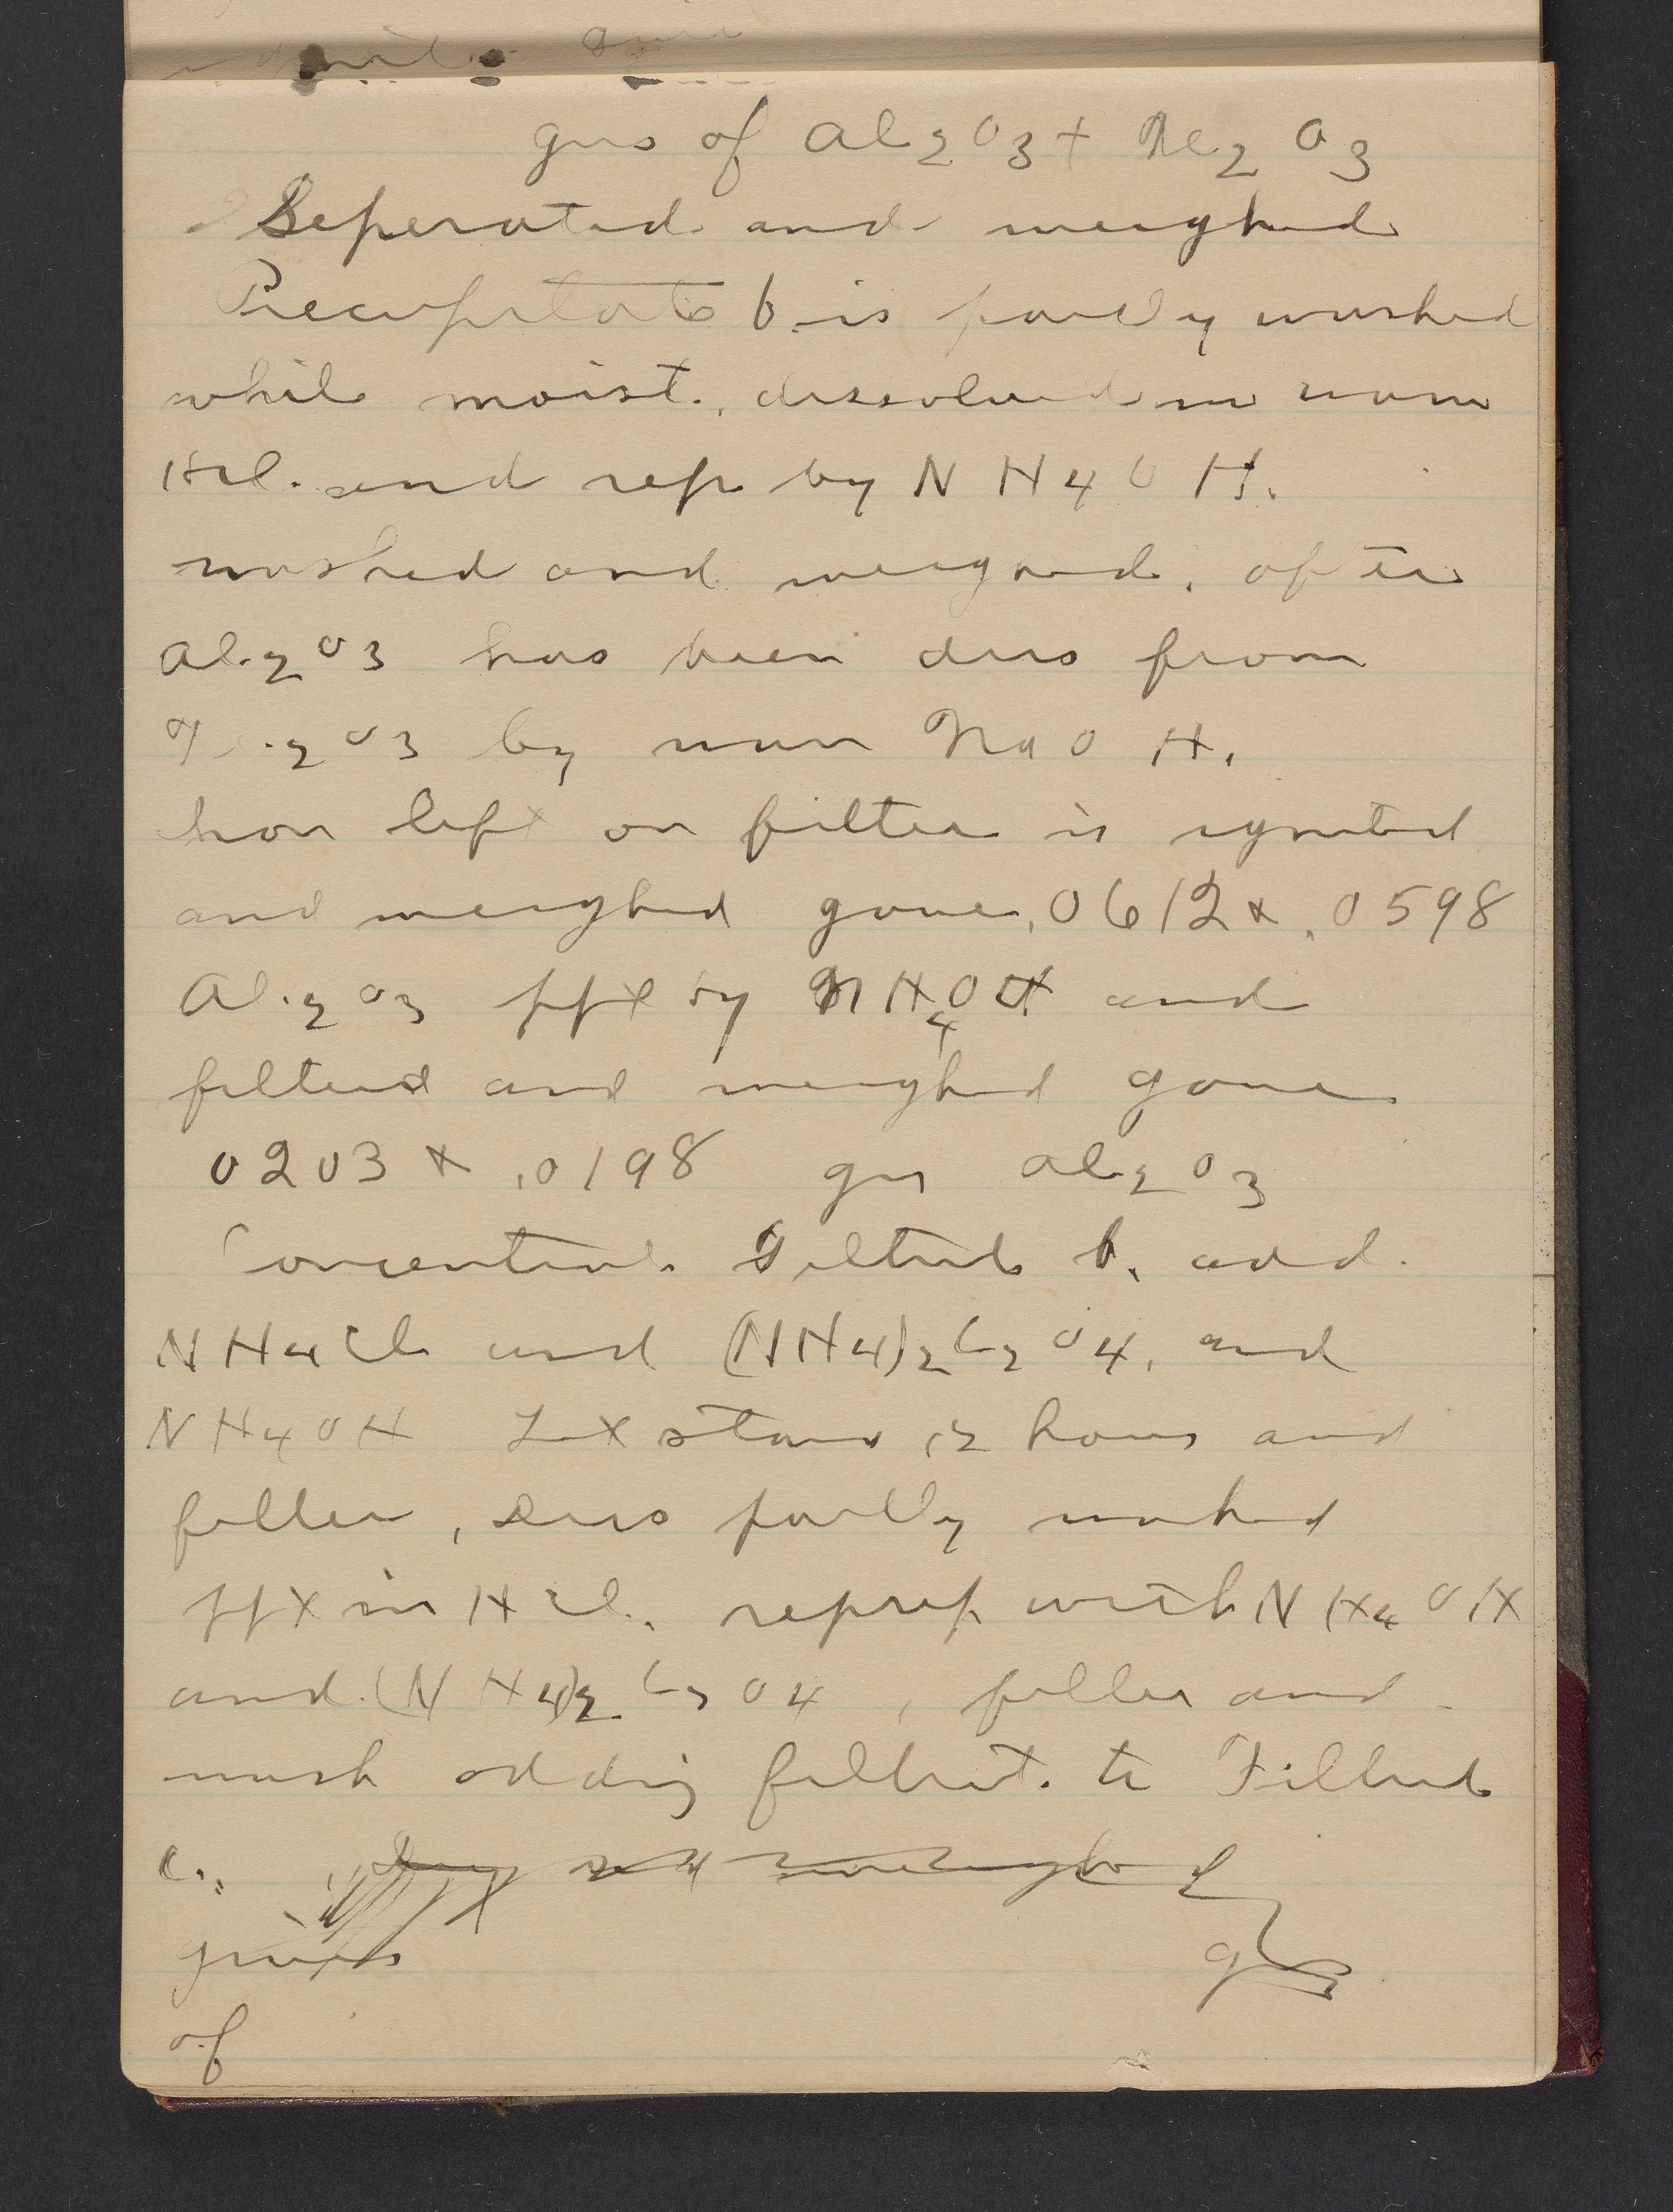 gms of Al2O3 + Fe2O3
Seperated and weighed
Precipitate b is partly washed
while moist, dissolved in warm
HCl. and rep by NH4OH.
washed and weighed, after
Al2O3 has been diss from
Fe2O3 by warm NaOH.
Iron left on filter is ignited
and weighed gave .0612 + .0598
Al2O3 ppt by NH4OH and
filtered and weighed gave
0203 + .0198 gms Al2O3
Concentrate Filtrate b. add
NH4Cl and (NH4)2C2O4, and
NH4OH Let stand 12 hours and
filter, Diss partly washed
ppt in HCl. reprep with NH4OH
and (NH4)2C2O4, filter and
wash adding filtrate to Filtrate
c. Dry and weighed
gives
of